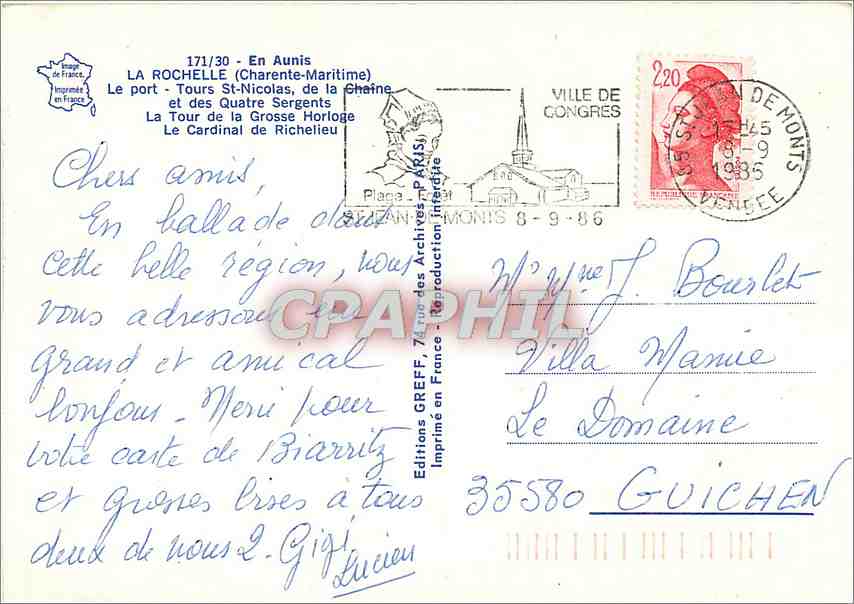 Image
de France.
Imprimée
en France
171/30 - En Aunis
LA ROCHELLE (Charente-Maritime)
Le port - Tours St-Nicolas, de la Chaîne
et des Quatre Sergents
La Tour de la Grosse Horloge
Le Cardinal de Richelieu
Chers amis,
En ballade dans
cette belle région, nous
vous adressons un
grand et amical
bonjour - Merci pour
votre carte de Biarritz
et grosses bises à tous
deux de nous 2 - Gigi
Lucien
Editions GREFF, 74 rue des Archives, PARIS
Imprimé en France - Reproduction interdite
VILLE DE
CONGRES
Plage - Forêt
ST JEAN-DE-MONTS 8-9-86
2,20
REPUBLIQUE FRANÇAISE
85 ST JEAN DE MONTS
17H45
8-9
1986
VENDEE
CPAPHIL
Mr Mme J. Bourlet
Villa Mamie
Le Domaine
35580 GUICHEN